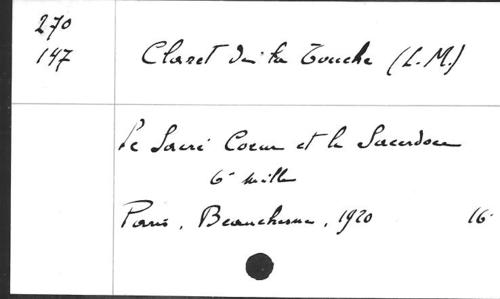 270
147
Claret de la Touche (L.M.)
Le Sacré Coeur et le Sacerdoce
6e mille
Paris, Beauchesne, 1920 16°